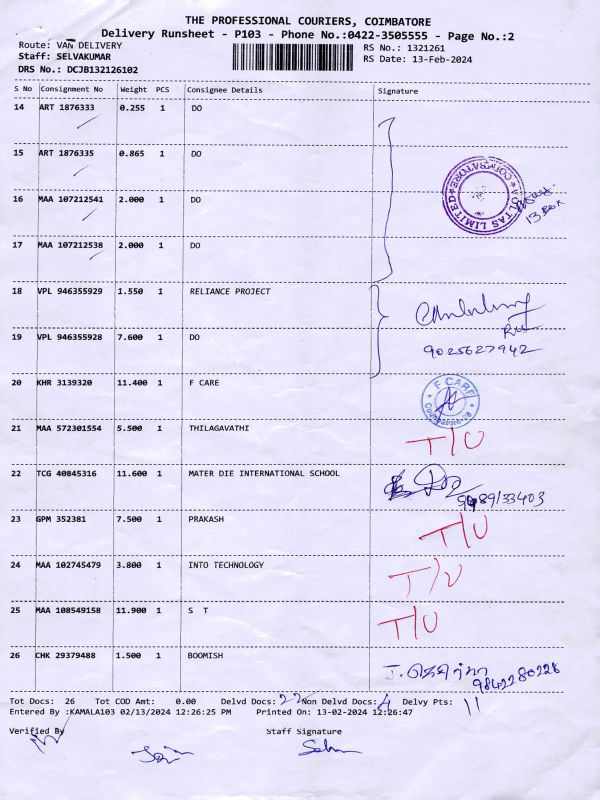 THE PROFESSIONAL COURIERS, COIMBATORE
Delivery Runsheet - P103 - Phone No.:0422-3505555 - Page No.:2
Route: VAN DELIVERY
RS No.: 1321261
Staff: SELVAKUMAR
RS Date: 13-Feb-2024
DRS No.: DCJB132126102
S No Consignment No Weight PCS Consignee Details Signature
14 ART 1876333 0.255 1 DO
15 ART 1876335 0.865 1 DO
VOLTAS LIMITED COIMBATORE
13 Box
16 MAA 107212541 2.000 1 DO
17 MAA 107212538 2.000 1 DO
18 VPL 946355929 1.550 1 RELIANCE PROJECT
19 VPL 946355928 7.600 1 DO
9025627942
20 KHR 3139320 11.400 1 F CARE
F CARE
Coimbatore-28
21 MAA 572301554 5.500 1 THILAGAVATHI T/U
22 TCG 40845316 11.600 1 MATER DIE INTERNATIONAL SCHOOL
23 GPM 352381 7.500 1 PRAKASH T/U
24 MAA 102745479 3.800 1 INTO TECHNOLOGY T/U
25 MAA 108549158 11.900 1 S T T/U
26 CHK 29379488 1.500 1 BOOMISH
9842280226
Tot Docs: 26 Tot COD Amt: 0.00 Delvd Docs: 22 Non Delvd Docs: 4 Delvy Pts: 11
Entered By :KAMALA103 02/13/2024 12:26:25 PM Printed On: 13-02-2024 12:26:47
Verified By Staff Signature